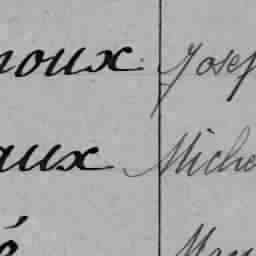 noux Josep
aux Miche
é Mau